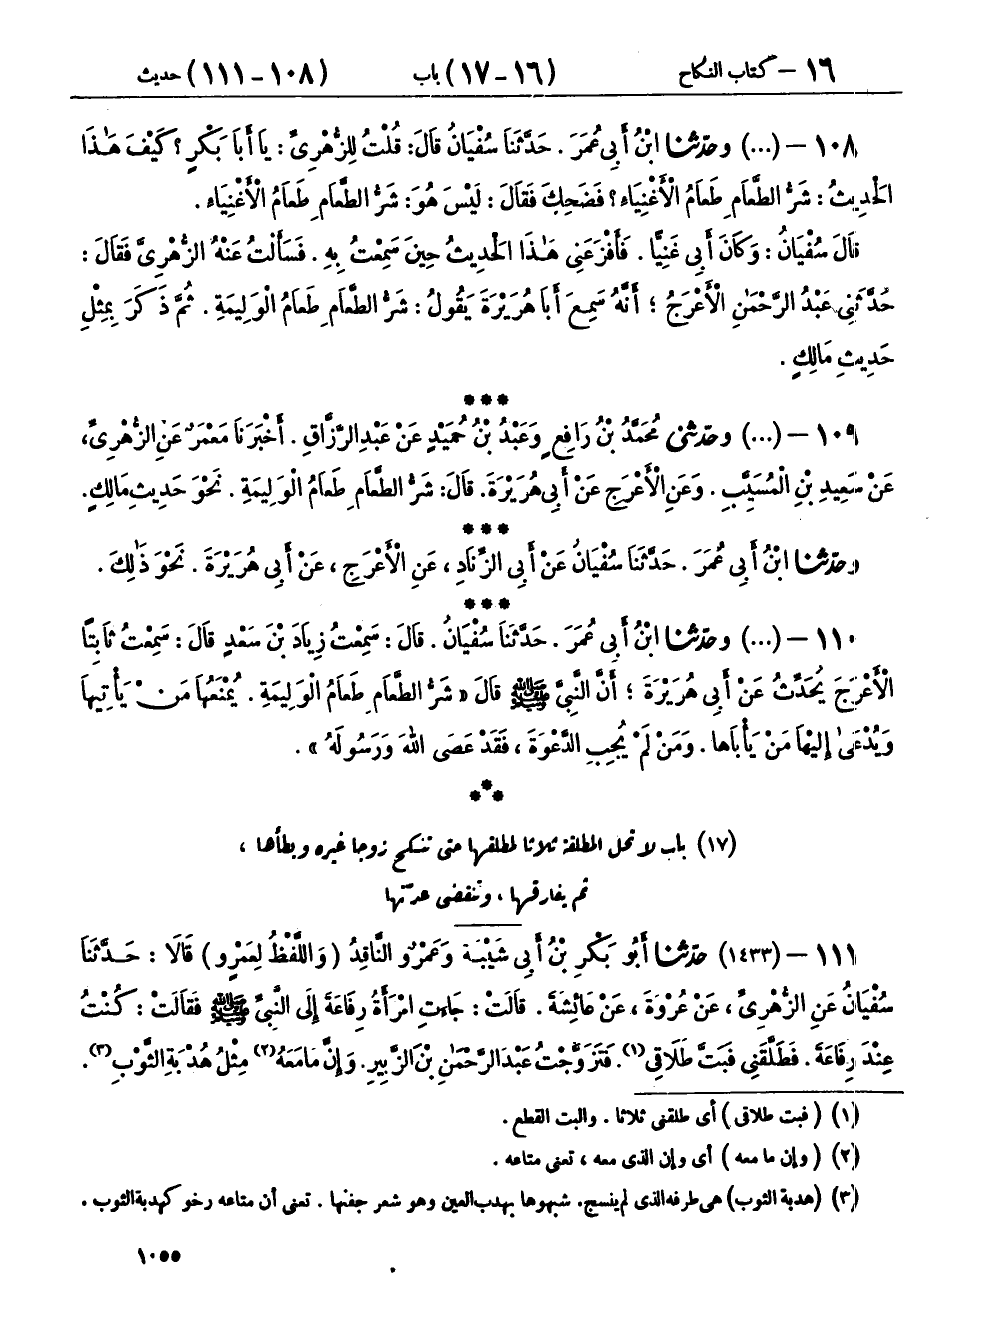 ١٦ – كتاب النكاح (١٦ – ١٧) باب (١٠٨ – ١١١) حديث
١٠٨ – (...) وحدّثنا ابْنُ أَبِى عُمَرَ . حَدَّثَنَا سُفْيَانُ قَالَ: قُلْتُ لِلزُّهْرِىِّ : يَا أَبَا بَكْرٍ ؟ كَيْفَ هَٰذَا
الْحَدِيثُ : شَرُّ الطَّعَامِ طَعَامُ الْأَغْنِيَاءِ ؟ فَضَحِكَ فَقَالَ : لَيْسَ هُوَ: شَرُّ الطَّعَامِ طَعَامُ الْأَغْنِيَاءِ .
قَالَ سُفْيَانُ : وَكَانَ أَبِى غَنِيًّا . فَأَفْزَعَنِى هَٰذَا الْحَدِيثُ حِينَ سَمِعْتُ بِهِ . فَسَأَلْتُ عَنْهُ الزُّهْرِىَّ فَقَالَ :
حَدَّثَنِى عَبْدُ الرَّحْمَٰنِ الْأَعْرَجُ ؛ أَنَّهُ سَمِعَ أَبَا هُرَيْرَةَ يَقُولُ : شَرُّ الطَّعَامِ طَعَامُ الْوَلِيمَةِ . ثُمَّ ذَكَرَ بِمِثْلِ
حَدِيثِ مَالِكٍ .
***
١٠٩ – (...) وحدّثنى مُحَمَّدُ بْنُ رَافِعٍ وَعَبْدُ بْنُ حُمَيْدٍ عَنْ عَبْدِ الرَّزَّاقِ . أَخْبَرَنَا مَعْمَرٌ عَنِ الزُّهْرِىِّ،
عَنْ سَعِيدِ بْنِ الْمُسَيَّبِ . وَعَنِ الْأَعْرَجِ عَنْ أَبِى هُرَيْرَةَ. قَالَ: شَرُّ الطَّعَامِ طَعَامُ الْوَلِيمَةِ . نَحْوَ حَدِيثِ مَالِكٍ.
***
وحدّثنا ابْنُ أَبِى عُمَرَ . حَدَّثَنَا سُفْيَانُ عَنْ أَبِى الزِّنَادِ ، عَنِ الْأَعْرَجِ ، عَنْ أَبِى هُرَيْرَةَ . نَحْوَ ذَٰلِكَ .
***
١١٠ – (...) وحدّثنا ابْنُ أَبِى عُمَرَ . حَدَّثَنَا سُفْيَانُ . قَالَ : سَمِعْتُ زِيَادَ بْنَ سَعْدٍ قَالَ : سَمِعْتُ ثَابِتًا
الْأَعْرَجَ يُحَدِّثُ عَنْ أَبِى هُرَيْرَةَ ؛ أَنَّ النَّبِىَّ ﷺ قَالَ « شَرُّ الطَّعَامِ طَعَامُ الْوَلِيمَةِ . يُمْنَعُهَا مَنْ يَأْتِيهَا
وَيُدْعَىٰ إِلَيْهَا مَنْ يَأْبَاهَا . وَمَنْ لَمْ يُجِبِ الدَّعْوَةَ ، فَقَدْ عَصَى اللهَ وَرَسُولَهُ » .
***
(١٧) باب لا تحل المطلقة ثلاثا لمطلقها حتى تنكح زوجا غيره ويطأها ،
ثم يفارقها ، وتنقضى عدتها
١١١ – (١٤٣٣) حدّثنا أَبُو بَكْرِ بْنُ أَبِى شَيْبَةَ وَعَمْرٌو النَّاقِدُ ( وَاللَّفْظُ لِعَمْرٍو ) قَالَا : حَدَّثَنَا
سُفْيَانُ عَنِ الزُّهْرِىِّ ، عَنْ عُرْوَةَ ، عَنْ عَائِشَةَ . قَالَتْ : جَاءَتِ امْرَأَةُ رِفَاعَةَ إِلَى النَّبِىِّ ﷺ فَقَالَتْ : كُنْتُ
عِنْدَ رِفَاعَةَ . فَطَلَّقَنِى فَبَتَّ طَلَاقِى(١). فَتَزَوَّجْتُ عَبْدَ الرَّحْمَٰنِ بْنَ الزَّبِيرِ. وَإِنَّ مَا مَعَهُ(٢) مِثْلُ هُدْبَةِ الثَّوْبِ(٣).
(١) ( فبت طلاقى ) أى طلقنى ثلاثا . والبت القطع .
(٢) ( وإن ما معه ) أى وإن الذى معه ، تعنى متاعه .
(٣) (هدبة الثوب) هى طرفه الذى لم ينسج. شبهوها بهدب العين وهو شعر جفنها . تعنى أن متاعه رخو كهدبة الثوب .
١٠٥٥